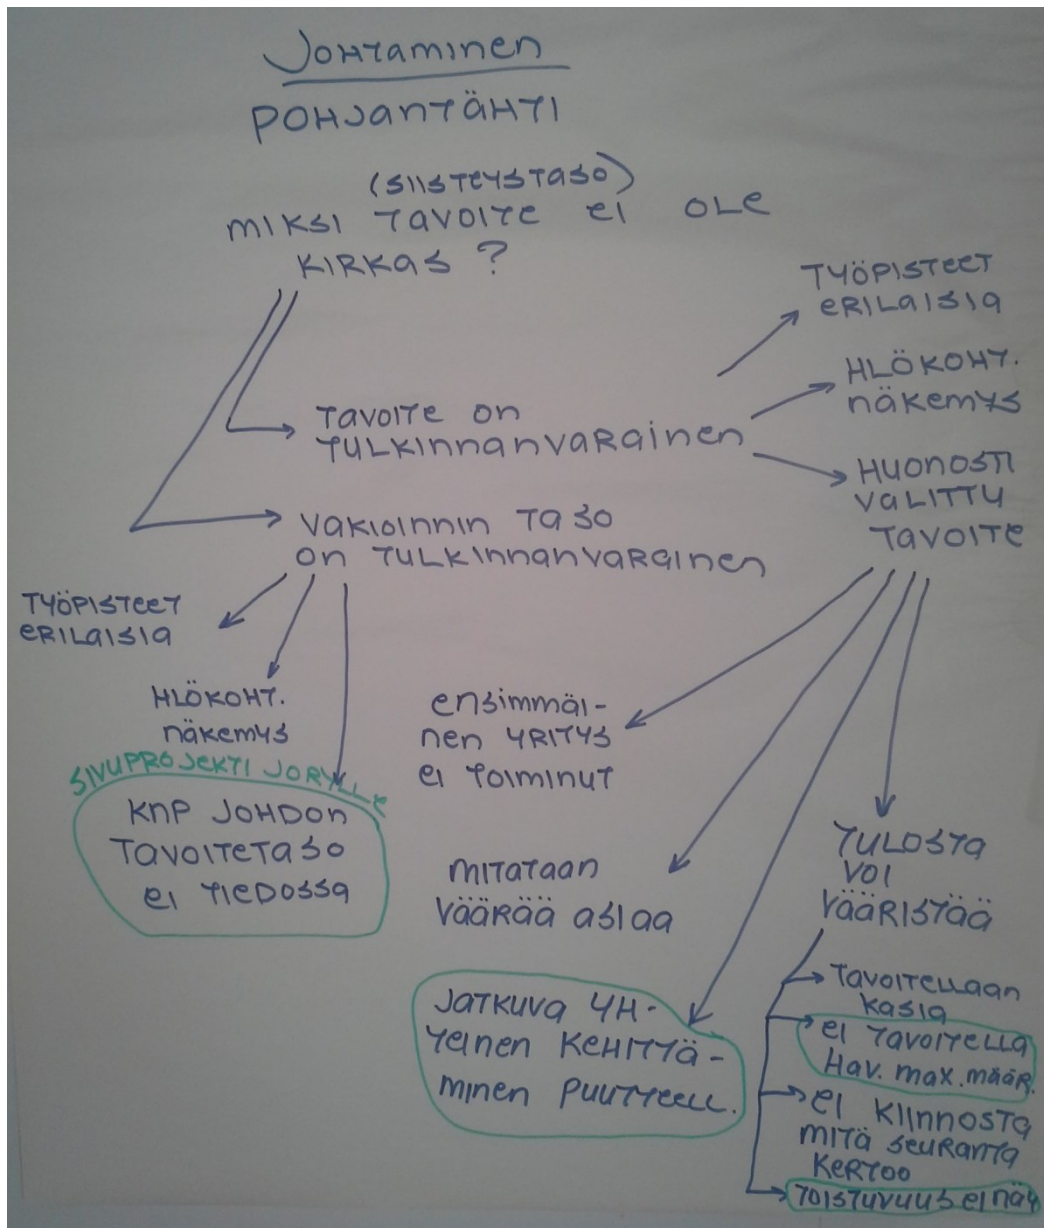 JOHTAMINEN
POHJANTÄHTI
(SIISTEYSTASO)
MIKSI TAVOITE EI OLE
KIRKAS ?
TAVOITE ON
TULKINNANVARAINEN
TYÖPISTEET
ERILAISIA
HLÖKOHT.
NÄKEMYS
HUONOSTI
VALITTU
TAVOITE
VAKIOINNIN TASO
ON TULKINNANVARAINEN
TYÖPISTEET
ERILAISIA
HLÖKOHT.
NÄKEMYS
SIVUPROJEKTI JORYLLE
KNP JOHDON
TAVOITETASO
EI TIEDOSSA
ENSIMMÄI-
NEN YRITYS
EI TOIMINUT
MITATAAN
VÄÄRÄÄ ASIAA
JATKUVA YH-
TEINEN KEHITTÄ-
MINEN PUUTTEELL.
TULOSTA
VOI
VÄÄRISTÄÄ
TAVOITELLAAN
KASIA
EI TAVOITELLA
HAV. MAX. MÄÄR.
EI KIINNOSTA
MITÄ SEURANTA
KERTOO
TOISTUVUUS EI NÄY